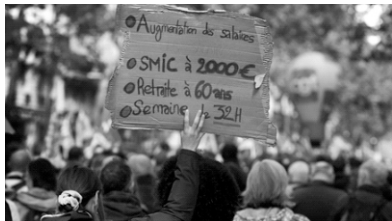 Augmentation des salaires
SMIC à 2000€
Retraite à 60 ans
Semaine de 32H